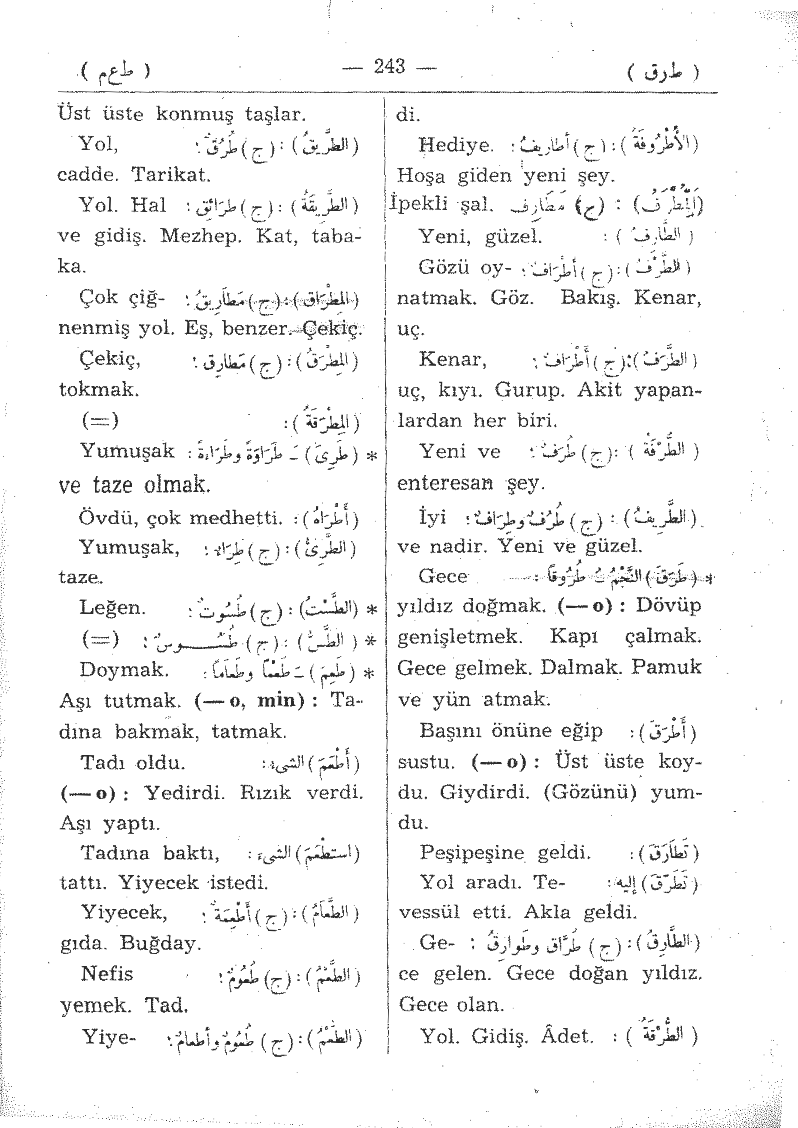 ( طرق ) — 243 — ( طعم )
di.
(الأُطْرُوفَةُ) : (ج) أطاريفُ : Hediye.
Hoşa giden yeni şey.
(المُِطْرَفُ) : (ج) مَطَارِف İpekli şal.
( الطَّارِفُ ) : Yeni, güzel.
( الطَّرْفُ ) : (ج) أطْرَافٌ : Gözü oy-
natmak. Göz. Bakış. Kenar,
uç.
( الطَّرَفُ ) : (ج) أَطْرَافٌ : Kenar,
uç, kıyı. Gurup. Akit yapan-
lardan her biri.
( الطُّرْفَةُ ) : (ج) طُرَفٌ : Yeni ve
enteresan şey.
(الطَّرِيفُ) : (ج) طُرُفٌ وطِرَافٌ : İyi
ve nadir. Yeni ve güzel.
* (طَرَقَ) النَّجْمُ ُ طُرُوقًا : Gece
yıldız doğmak. (— o) : Dövüp
genişletmek. Kapı çalmak.
Gece gelmek. Dalmak. Pamuk
ve yün atmak.
(أَطْرَقَ) : Başını önüne eğip
sustu. (— o) : Üst üste koy-
du. Giydirdi. (Gözünü) yum-
du.
(تَطَارَقَ) : Peşipeşine geldi.
(تَطَرَّقَ) إليه : Yol aradı. Te-
vessül etti. Akla geldi.
(الطَّارِقُ) : (ج) طُرَّاق وطَوارِقُ : Ge-
ce gelen. Gece doğan yıldız.
Gece olan.
( الطُّرْقَةُ ) : Yol. Gidiş. Âdet.
Üst üste konmuş taşlar.
(الطَّرِيقُ) : (ج) طُرُقٌ : Yol,
cadde. Tarikat.
(الطَّرِيقَةُ) : (ج) طَرَائق : Yol. Hal
ve gidiş. Mezhep. Kat, taba-
ka.
(المِطْرَاق) : (ج) مَطَارِيقُ : Çok çiğ-
nenmiş yol. Eş, benzer. Çekiç.
(المِطْرَقُ) : (ج) مَطَارِق : Çekiç,
tokmak.
(المِطْرَقَةُ) : (=)
* (طَرِىَ) ـَ طَرَاوَةً وطَرَاءةً : Yumuşak
ve taze olmak.
(أَطْرَاهُ) : Övdü, çok medhetti.
(الطَّرِىُّ) : (ج) طِرَاء : Yumuşak,
taze.
* (الطَّسْتُ) : (ج) طُسُوت : Leğen.
* (الطَّسُّ) : (ج) طُسُوسٌ : (=)
* (طَعِمَ) ـَ طَعْمًا وطَعَامًا : Doymak.
Aşı tutmak. (— o, min) : Ta-
dına bakmak, tatmak.
(أَطْعَمَ) الشىء : Tadı oldu.
(— o) : Yedirdi. Rızık verdi.
Aşı yaptı.
(استطْعَمَ) الشىء : Tadına baktı,
tattı. Yiyecek istedi.
(الطَّعَامُ) : (ج) أَطْعِمَةٌ : Yiyecek,
gıda. Buğday.
(الطَّعْمُ) : (ج) طُعُومٌ : Nefis
yemek. Tad.
(الطُّعْمُ) : (ج) طُعُومٌ وأطعامٌ : Yiye-